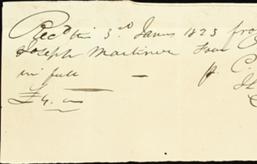 Rec'd the 3rd Jany 1823 fro
Joseph Mortimer Four
in full — p. C.
£4.